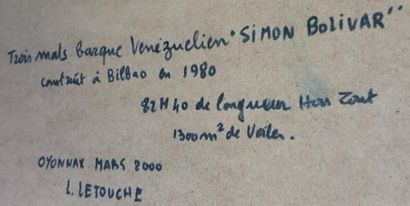 Trois mats barque Venezuelien "SIMON BOLIVAR"
construit à Bilbao en 1980
82M40 de longueur Hors Tout
1300m² de Voiles.
OYONNAX MARS 2000
L. LETOUCHE